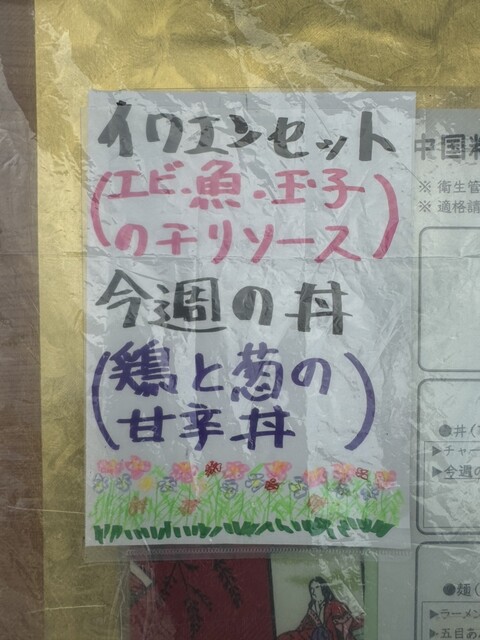 イワエンセット
(エビ・魚・玉子
のチリソース)
今週の丼
(鶏と葱の
甘辛丼)
中国料
※ 衛生管
※ 適格請
●丼(
▶チャー
▶今週の
●麺(
▶ラーメン
▶五目あ